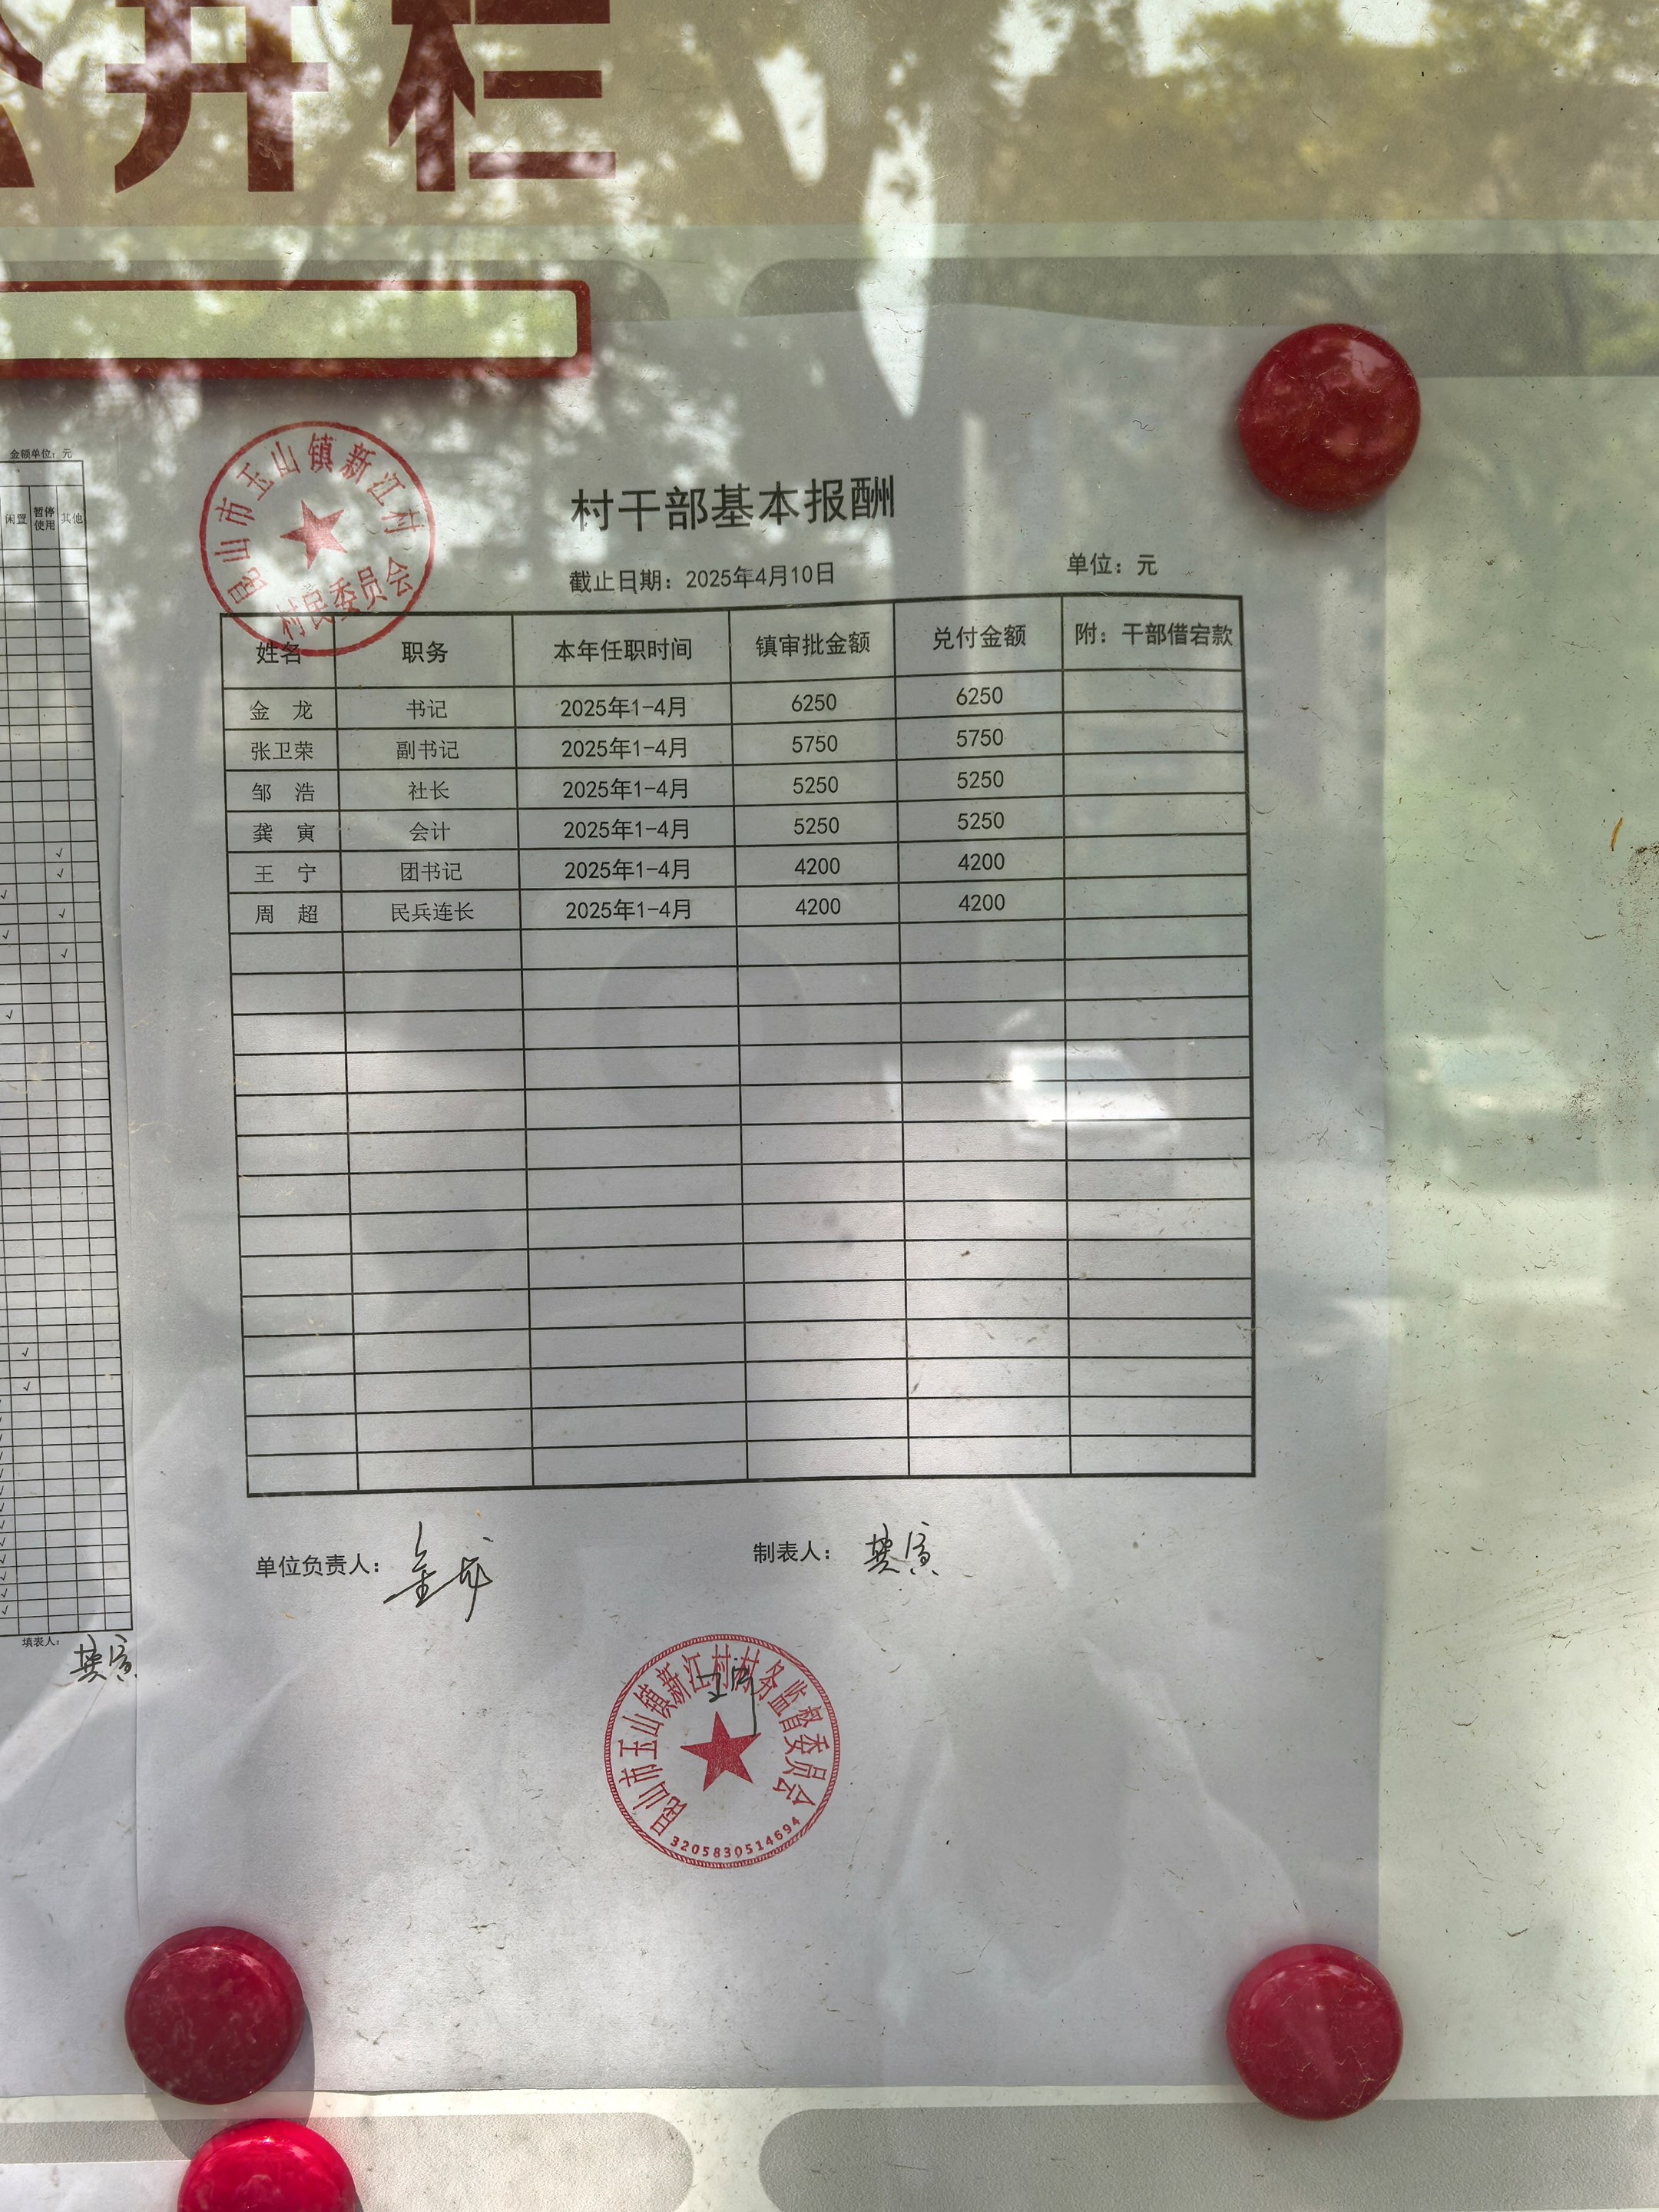 开栏
金额单位：元
闲置 暂停使用 其他
填表人：
龚寅
昆山市玉山镇新江村
村民委员会
村干部基本报酬
截止日期：2025年4月10日
单位：元
姓名 职务 本年任职时间 镇审批金额 兑付金额 附：干部借宕款
金 龙 书记 2025年1-4月 6250 6250
张卫荣 副书记 2025年1-4月 5750 5750
邹 浩 社长 2025年1-4月 5250 5250
龚 寅 会计 2025年1-4月 5250 5250
王 宁 团书记 2025年1-4月 4200 4200
周 超 民兵连长 2025年1-4月 4200 4200
单位负责人：金龙 制表人：龚寅
昆山市玉山镇新江村村务监督委员会
3205830514694